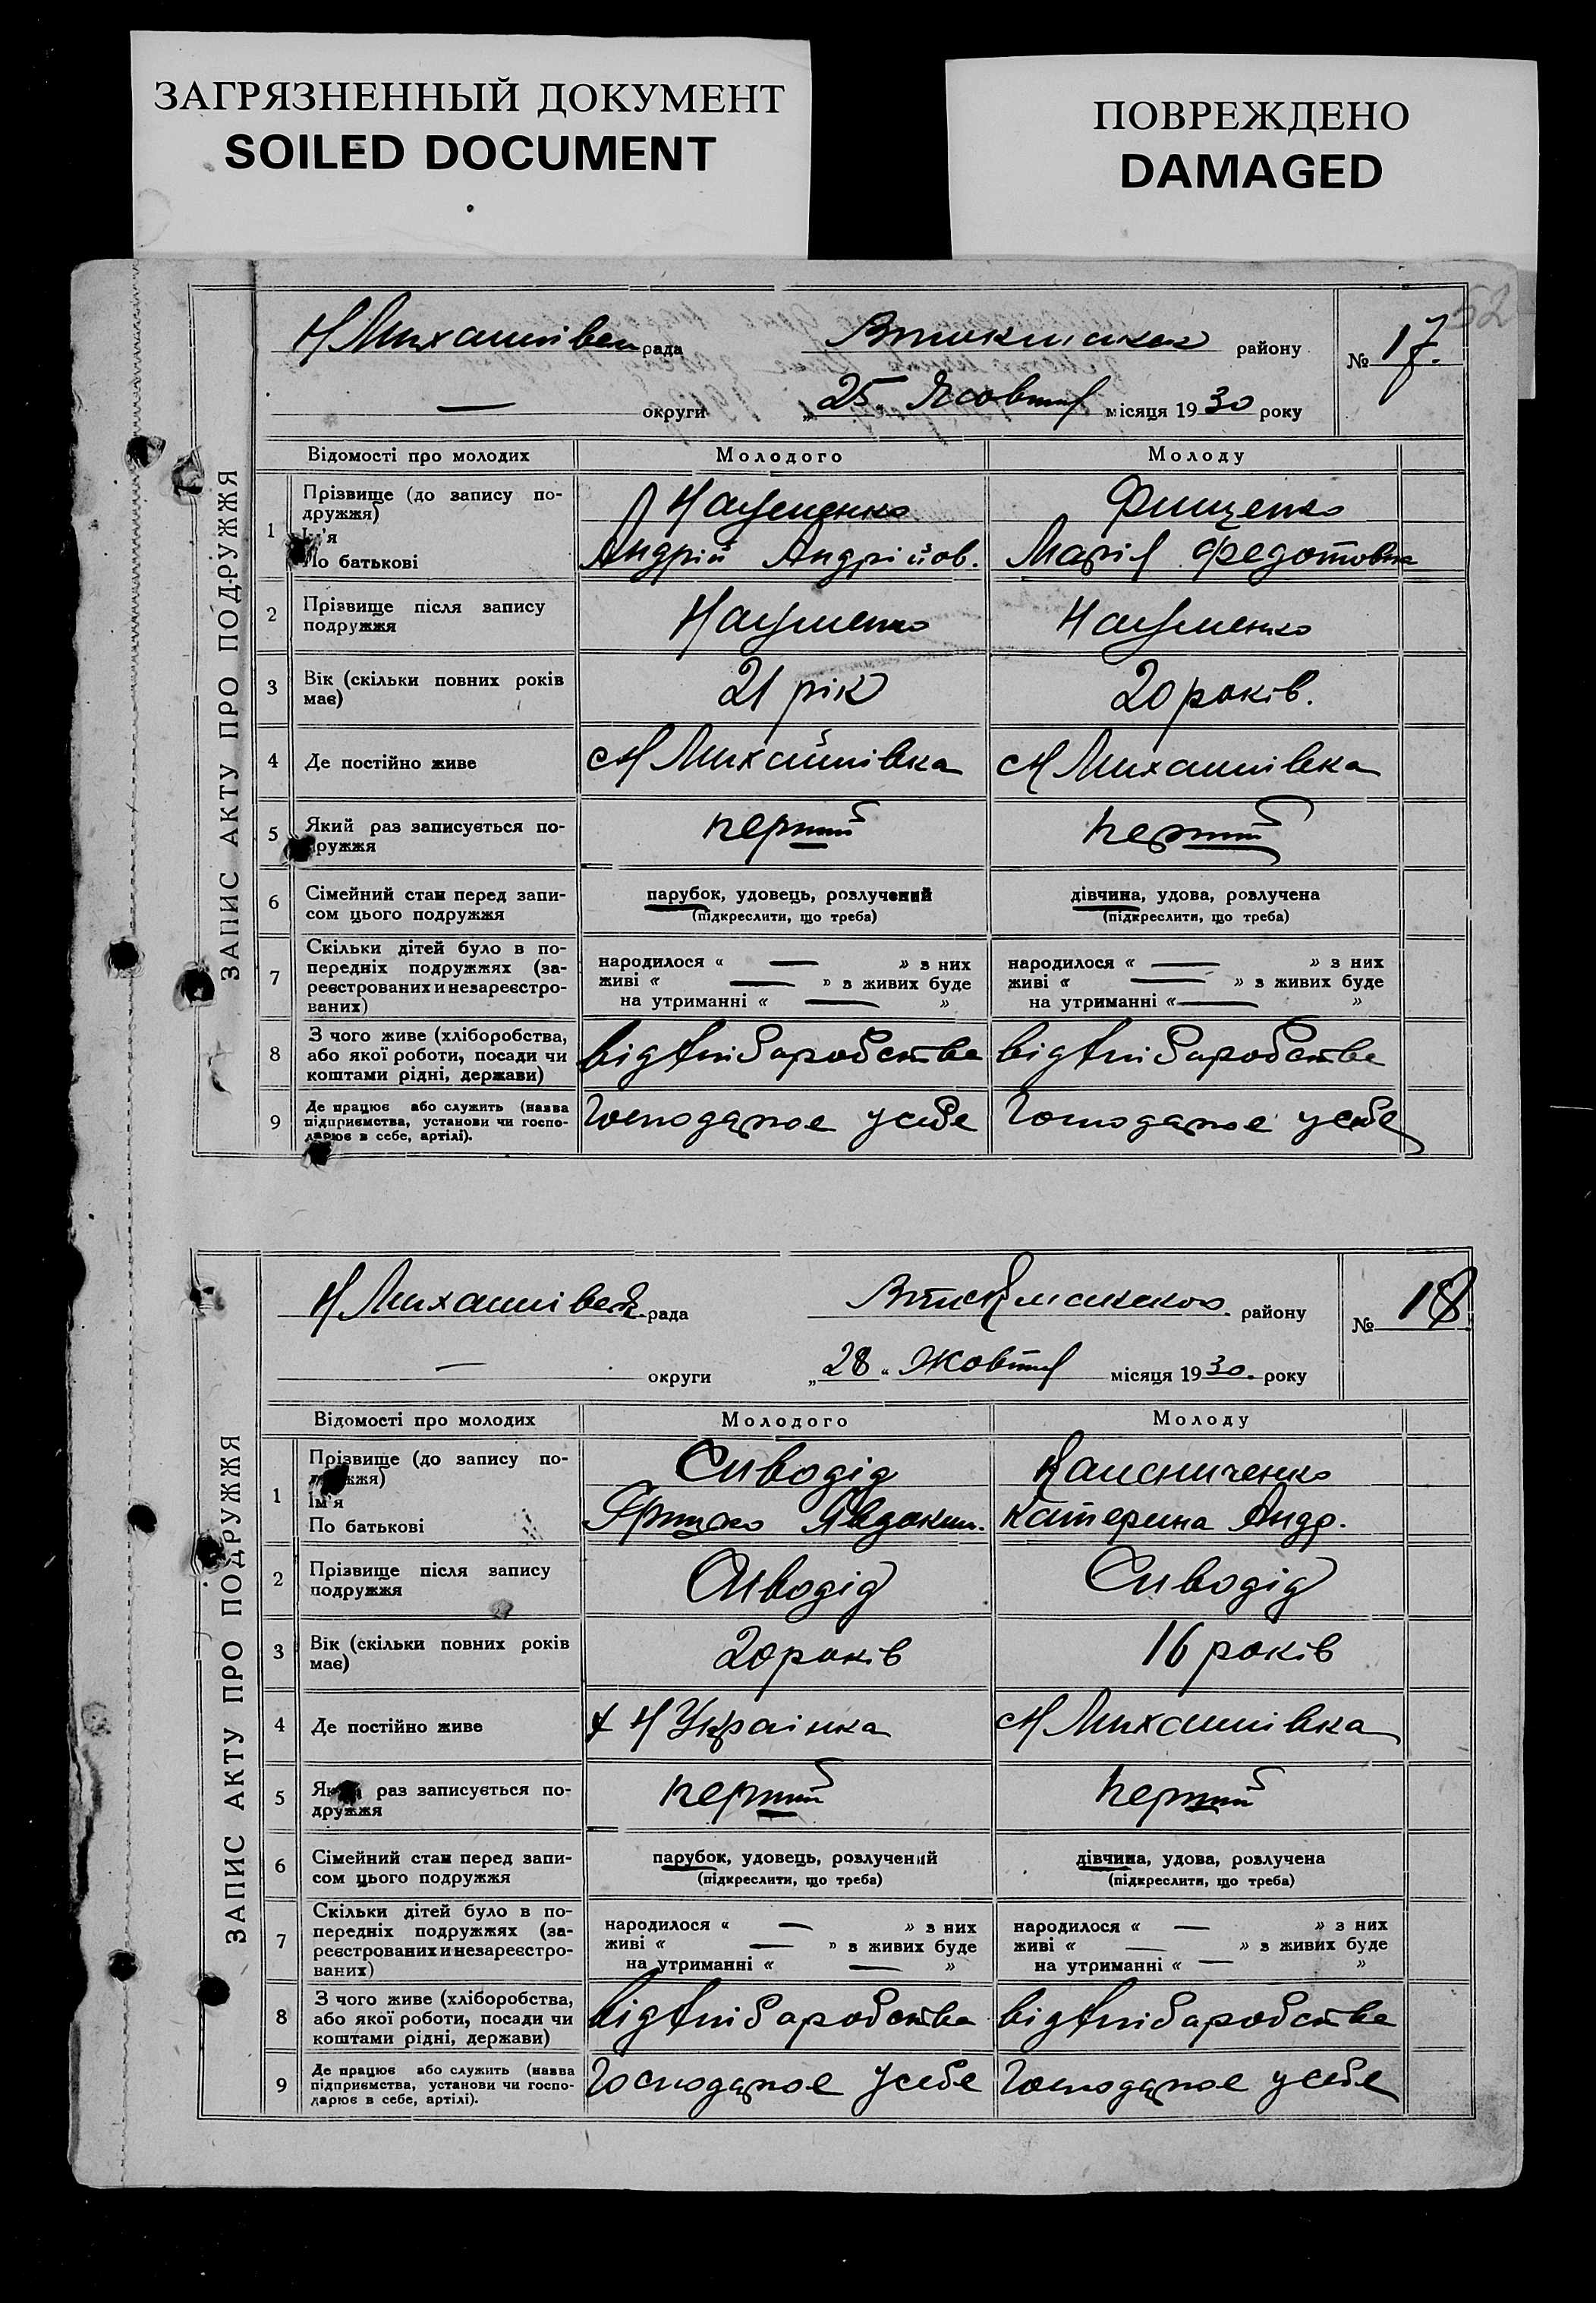 ЗАГРЯЗНЕННЫЙ ДОКУМЕНТ
SOILED DOCUMENT
ПОВРЕЖДЕНО
DAMAGED
52
ЗАПИС АКТУ ПРО ПОДРУЖЖЯ
Н Михайлівськ рада району № 17.
— округи „25„ Жовтня місяця 1930 року
Відомості про молодих Молодого Молоду
1 Прізвище (до запису подружжя) Науменко Фищенко
Ім'я
По батькові Андрій Андрійов. Марія Федотовна
2 Прізвище після запису подружжя Науменко Науменко
3 Вік (скільки повних років має) 21 рік 20 років.
4 Де постійно живе Н Михайлівка Н Михайлівка
5 Який раз записується подружжя перший перший
6 Сімейний стан перед записом цього подружжя парубок, удовець, розлучений дівчина, удова, розлучена
(підкреслити, що треба) (підкреслити, що треба)
7 Скільки дітей було в попередніх подружжях (зареєстрованих и незареєстрованих) народилося « — » з них народилося « — » з них
живі « — » з живих буде живі « — » з живих буде
на утриманні « — » на утриманні « — »
8 З чого живе (хліборобства, або якої роботи, посади чи коштами рідні, держави) від хліборобства від хліборобства
9 Де працює або служить (назва підприємства, установи чи господарює в себе, артілі). Господарює у себе Господарює у себе
ЗАПИС АКТУ ПРО ПОДРУЖЖЯ
Н Михайлівськ рада району № 18
— округи „28„ Жовтня місяця 1930. року
Відомості про молодих Молодого Молоду
1 Прізвище (до запису подружжя) Сиводід
Ім'я
По батькові Грицько Явдоким. Катерина Андр.
2 Прізвище після запису подружжя Сиводід Сиводід
3 Вік (скільки повних років має) 20 років 16 років
4 Де постійно живе х Н Українка Н Михайлівка
5 Який раз записується подружжя перший перший
6 Сімейний стан перед записом цього подружжя парубок, удовець, розлучений дівчина, удова, розлучена
(підкреслити, що треба) (підкреслити, що треба)
7 Скільки дітей було в попередніх подружжях (зареєстрованих и незареєстрованих) народилося « — » з них народилося « — » з них
живі « — » з живих буде живі « — » з живих буде
на утриманні « — » на утриманні « — »
8 З чого живе (хліборобства, або якої роботи, посади чи коштами рідні, держави) від хліборобства від хліборобства
9 Де працює або служить (назва підприємства, установи чи господарює в себе, артілі). Господарює у себе Господарює у себе